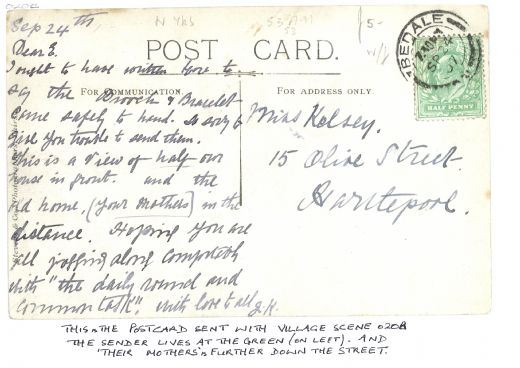 0208
N Yks
5-
Sep 24th
Dear E.
POST CARD.
I ought to have written here to
FOR COMMUNICATION
FOR ADDRESS ONLY.
say the Brooch & Bracelet
came safely to hand. So sorry to
give you trouble to send them.
This is a view of half our
house in front. and the
old home, (your Mothers) in the
distance. Hoping you are
all jogging along comfortably
with "the daily round and
common task". With love to all J.K.
Miss Kelsey.
15 Olive Street.
Hartlepool.
BEDALE
SP 24
07
HALF PENNY
THIS IS THE POSTCARD SENT WITH VILLAGE SCENE 0208
THE SENDER LIVES AT THE GREEN (ON LEFT). AND
'THEIR MOTHERS' IS FURTHER DOWN THE STREET.